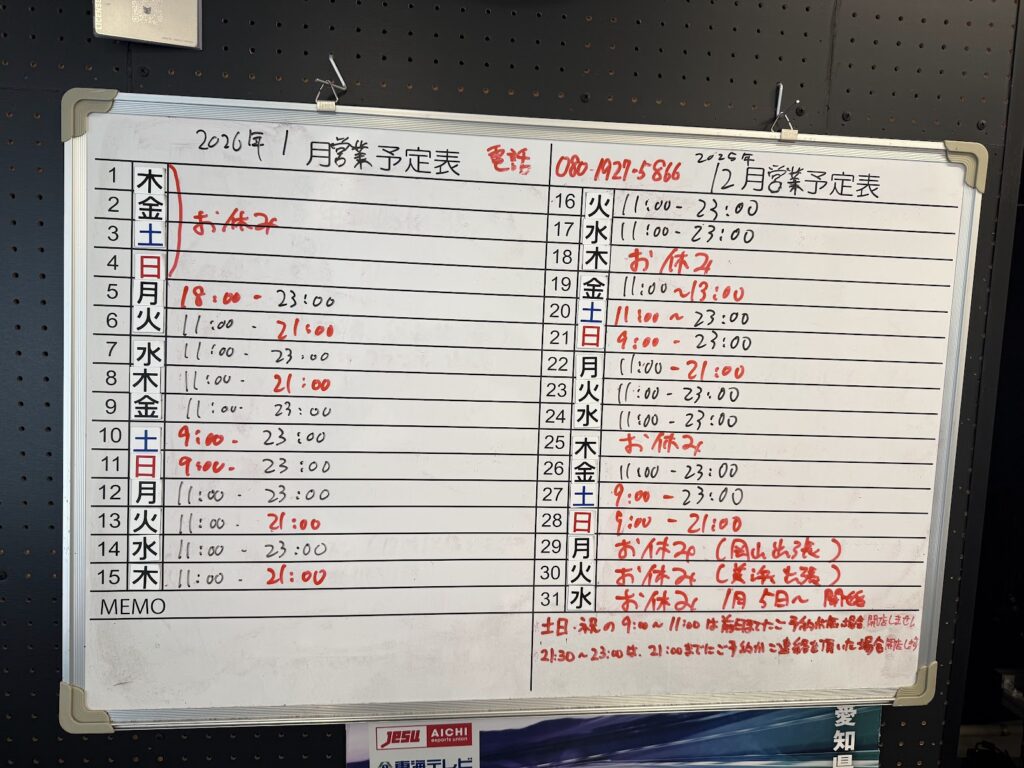 2026年 1月営業予定表
電話 080-1927-5866
1 木
2 金
3 土
4 日
お休み
5 月 18:00 - 23:00
6 火 11:00 - 21:00
7 水 11:00 - 23:00
8 木 11:00 - 21:00
9 金 11:00 - 23:00
10 土 9:00 - 23:00
11 日 9:00 - 23:00
12 月 11:00 - 23:00
13 火 11:00 - 21:00
14 水 11:00 - 23:00
15 木 11:00 - 21:00
MEMO
2025年
12月営業予定表
16 火 11:00 - 23:00
17 水 11:00 - 23:00
18 木 お休み
19 金 11:00 〜13:00
20 土 11:00 〜 23:00
21 日 9:00 - 23:00
22 月 11:00 - 21:00
23 火 11:00 - 23:00
24 水 11:00 - 23:00
25 木 お休み
26 金 11:00 - 23:00
27 土 9:00 - 23:00
28 日 9:00 - 21:00
29 月 お休み (岡山出張)
30 火 お休み (美浜出張)
31 水 お休み 1月5日〜 開始
土日・祝の9:00〜11:00は前日までにご予約 場合 開店しません
21:30〜23:00は、21:00までにご予約かご連絡を頂いた場合 開店します
JeSU AICHI
esports union
東海テレビ
愛知県